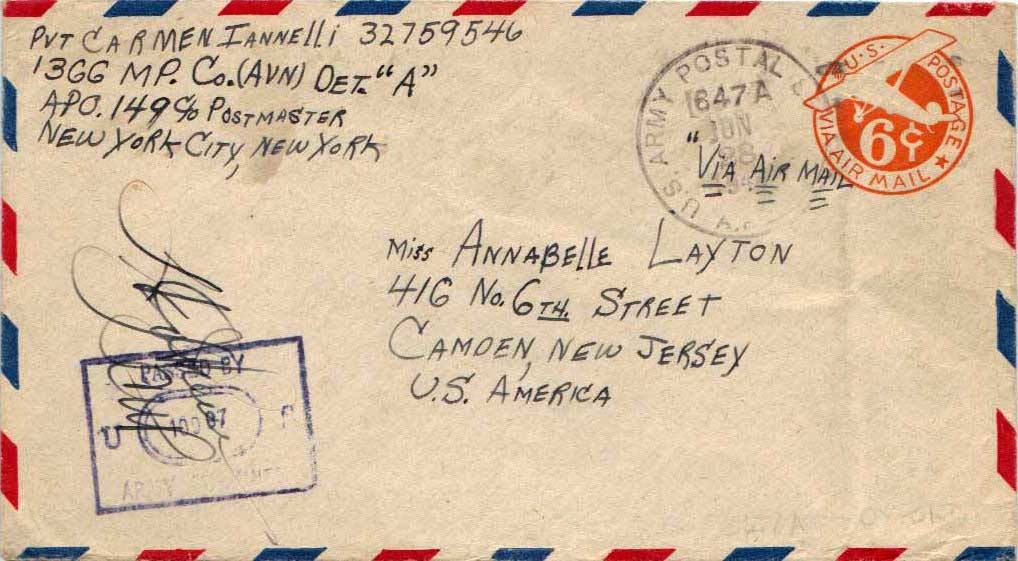 PVT CARMEN IANNELLI 32759546
1366 M.P. Co. (AVN) DET. "A"
APO. 149 c/o POSTMASTER
NEW YORK CITY, NEW YORK
U.S. ARMY POSTAL
647A
JUN
28
U.S. POSTAGE
6¢
VIA AIR MAIL
"VIA AIR MAIL
Miss ANNABELLE LAYTON
416 No. 6TH. STREET
CAMDEN, NEW JERSEY
U.S. AMERICA
PASSED BY
U S
ARMY EXAMINER